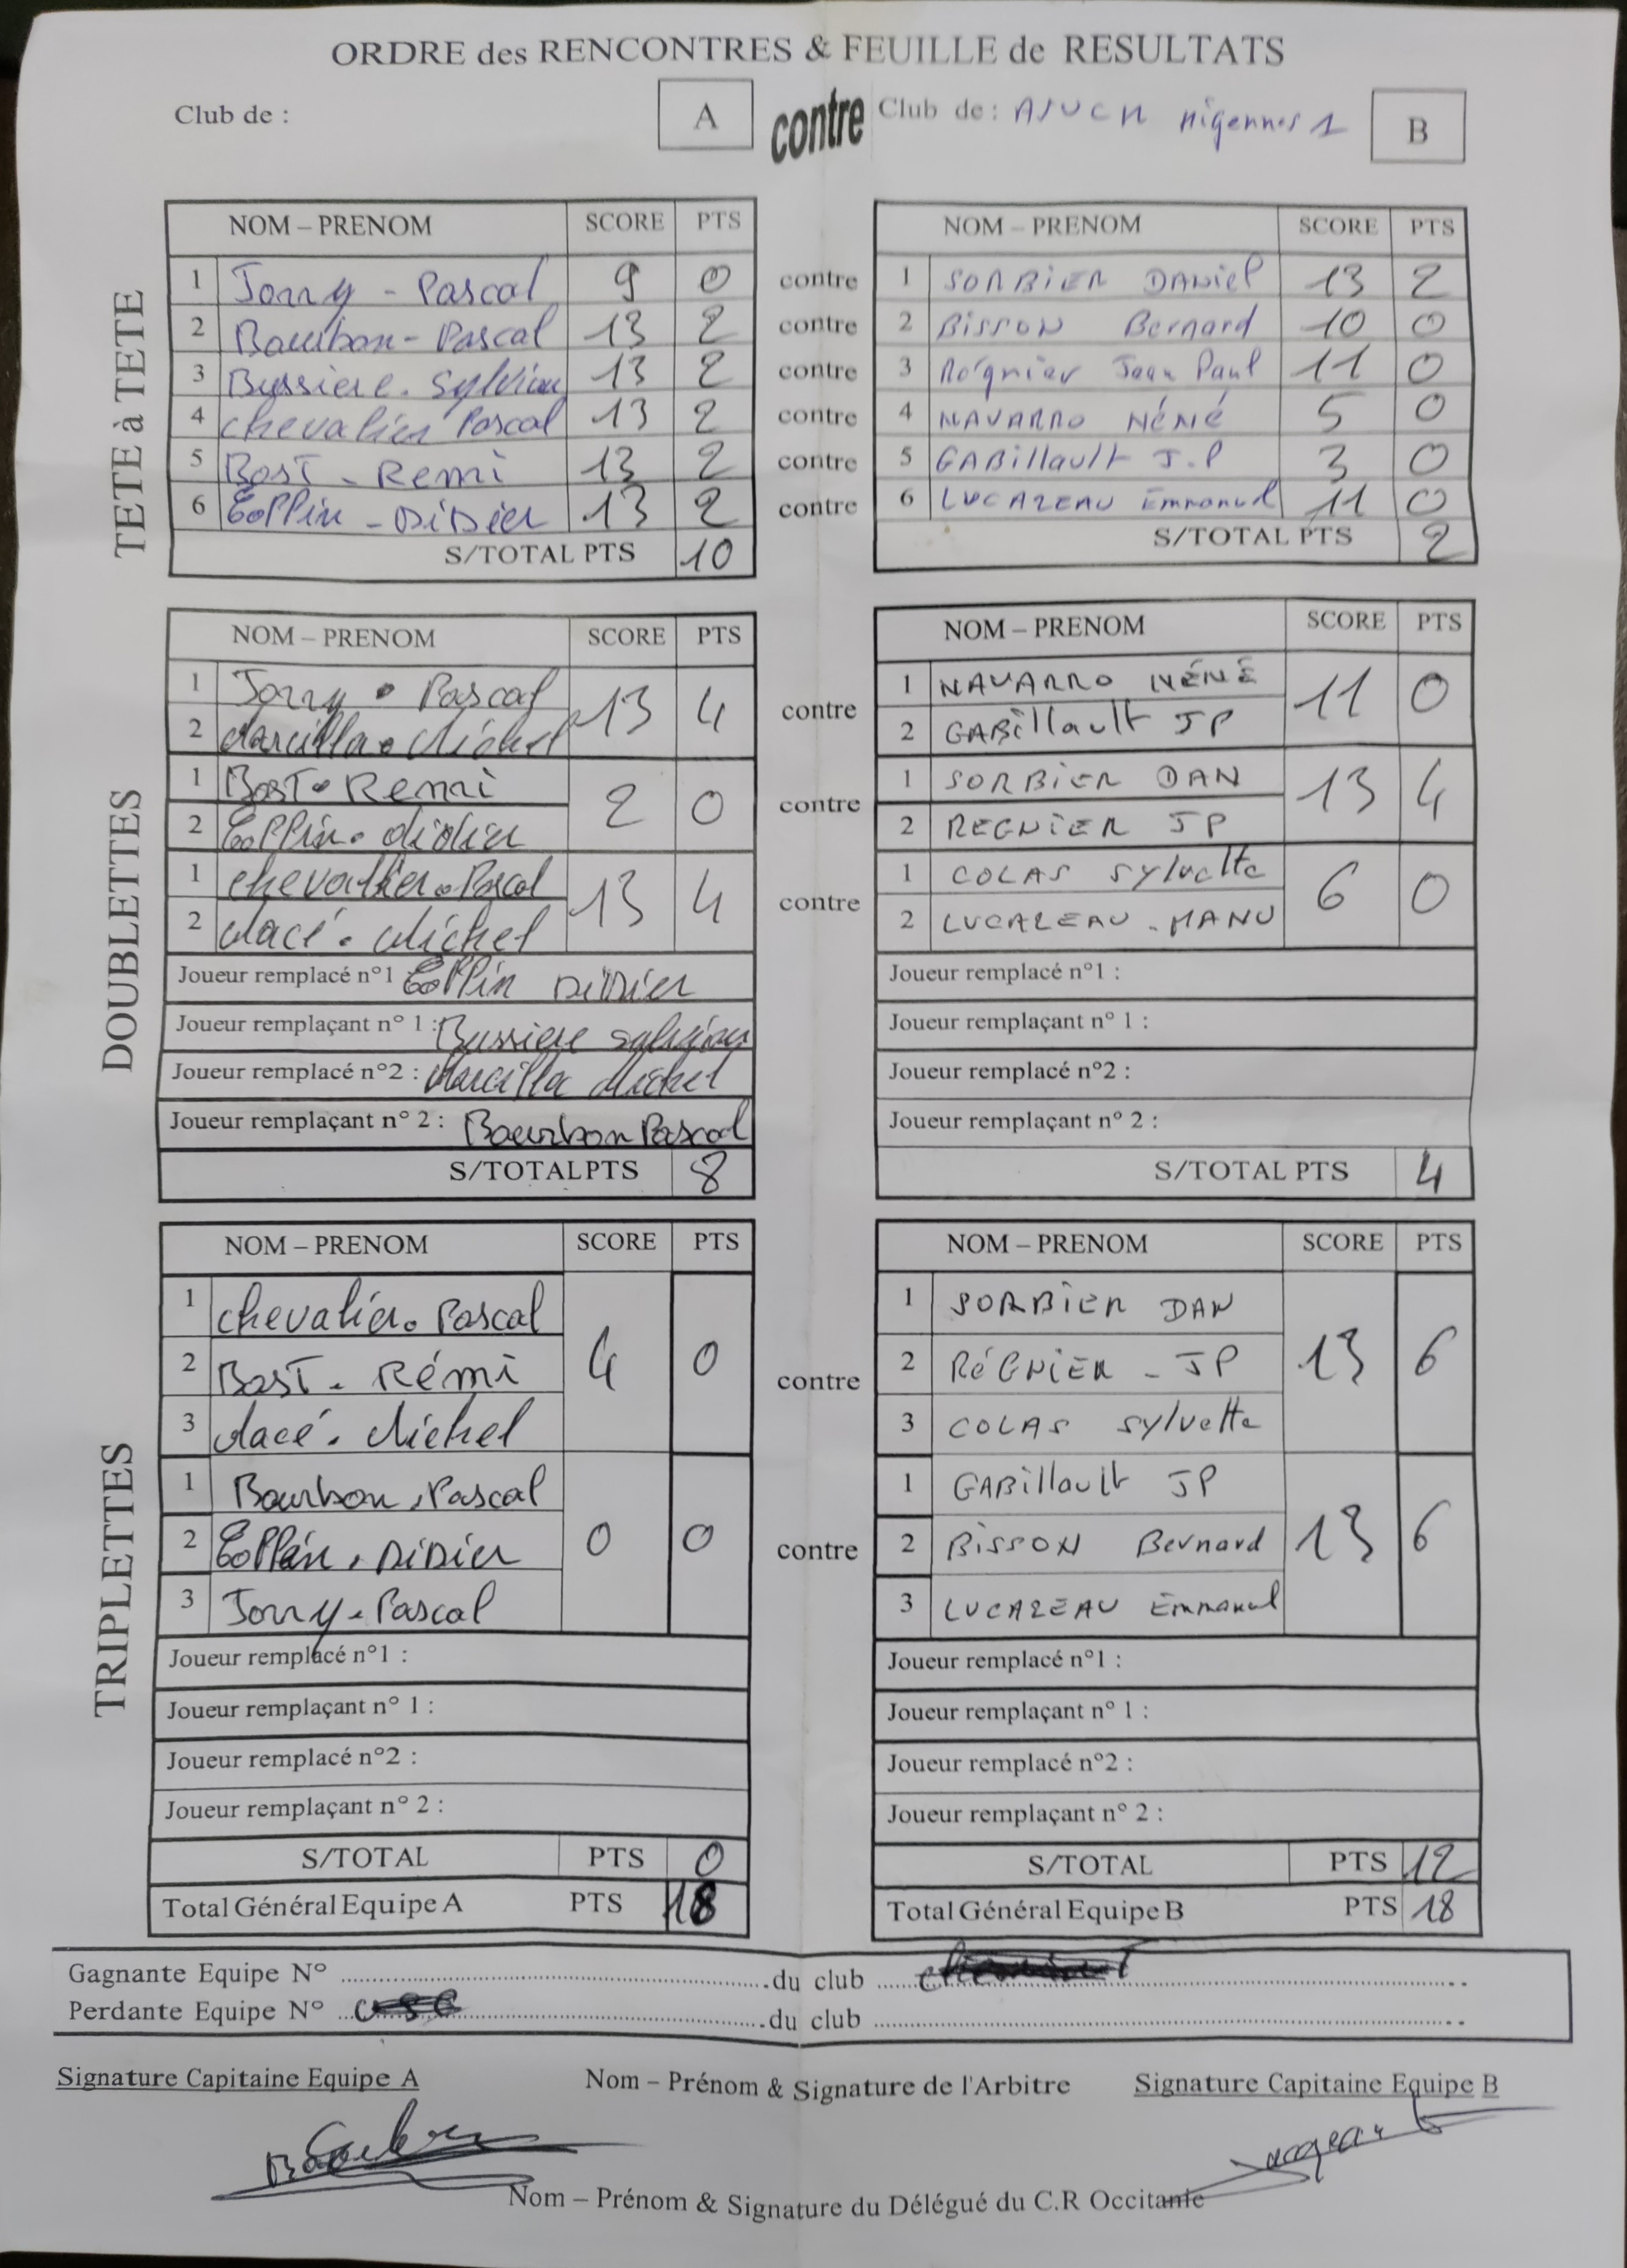 ORDRE des RENCONTRES & FEUILLE de RESULTATS
Club de : A contre Club de : AJUCM Migennes 1 B
TETE à TETE
NOM – PRENOM SCORE PTS NOM – PRENOM SCORE PTS
1 Jorry - Pascal 9 0 contre 1 SORBiER DANiel 13 2
2 Bourbon - Pascal 13 2 contre 2 BissoN Bernard 10 0
3 Bussiere. Sylvian 13 2 contre 3 Régnier Jean Paul 11 0
4 chevalier Pascal 13 2 contre 4 NAVARRO NéNé 5 0
5 BosT - Remi 13 2 contre 5 GABillault J.P 3 0
6 - DiDier 13 2 contre 6 LUCAZEAU Emmanuel 11 0
S/TOTAL PTS 10 S/TOTAL PTS 2
DOUBLETTES
NOM – PRENOM SCORE PTS NOM – PRENOM SCORE PTS
1 Jorry • Pascal 13 4 contre 1 NAVARRO NÉNÉ 11 0
2 Marcilla • Michel 2 GABillault JP
1 BosT • Remi 2 0 contre 1 SORBiER DAN 13 4
2 didier 2 REGNiER JP
1 chevallier • Pascal 13 4 contre 1 COLAS Sylvette 6 0
2 Macé . Michel 2 LUCAZEAU - MANU
Joueur remplacé n°1 DiDier Joueur remplacé n°1 :
Joueur remplaçant n° 1 : Bussiere Sylvian Joueur remplaçant n° 1 :
Joueur remplacé n°2 : Marcilla Michel Joueur remplacé n°2 :
Joueur remplaçant n° 2 : Bourbon Pascal Joueur remplaçant n° 2 :
S/TOTAL PTS 8 S/TOTAL PTS 4
TRIPLETTES
NOM – PRENOM SCORE PTS NOM – PRENOM SCORE PTS
1 chevalier. Pascal 4 0 contre 1 SORBiER DAN 13 6
2 BosT - Rémi 2 RéGNiER - JP
3 Macé . Michel 3 COLAS Sylvette
1 Bourbon . Pascal 0 0 contre 1 GABillault JP 13 6
2 . DiDier 2 BissON Bernard
3 Jorry - Pascal 3 LUCAZEAU Emmanuel
Joueur remplacé n°1 : Joueur remplacé n°1 :
Joueur remplaçant n° 1 : Joueur remplaçant n° 1 :
Joueur remplacé n°2 : Joueur remplacé n°2 :
Joueur remplaçant n° 2 : Joueur remplaçant n° 2 :
S/TOTAL PTS 0 S/TOTAL PTS 12
Total Général Equipe A PTS 18 Total Général Equipe B PTS 18
Gagnante Equipe N° du club
Perdante Equipe N° du club
Signature Capitaine Equipe A Nom – Prénom & Signature de l'Arbitre Signature Capitaine Equipe B
Nom – Prénom & Signature du Délégué du C.R Occitanie